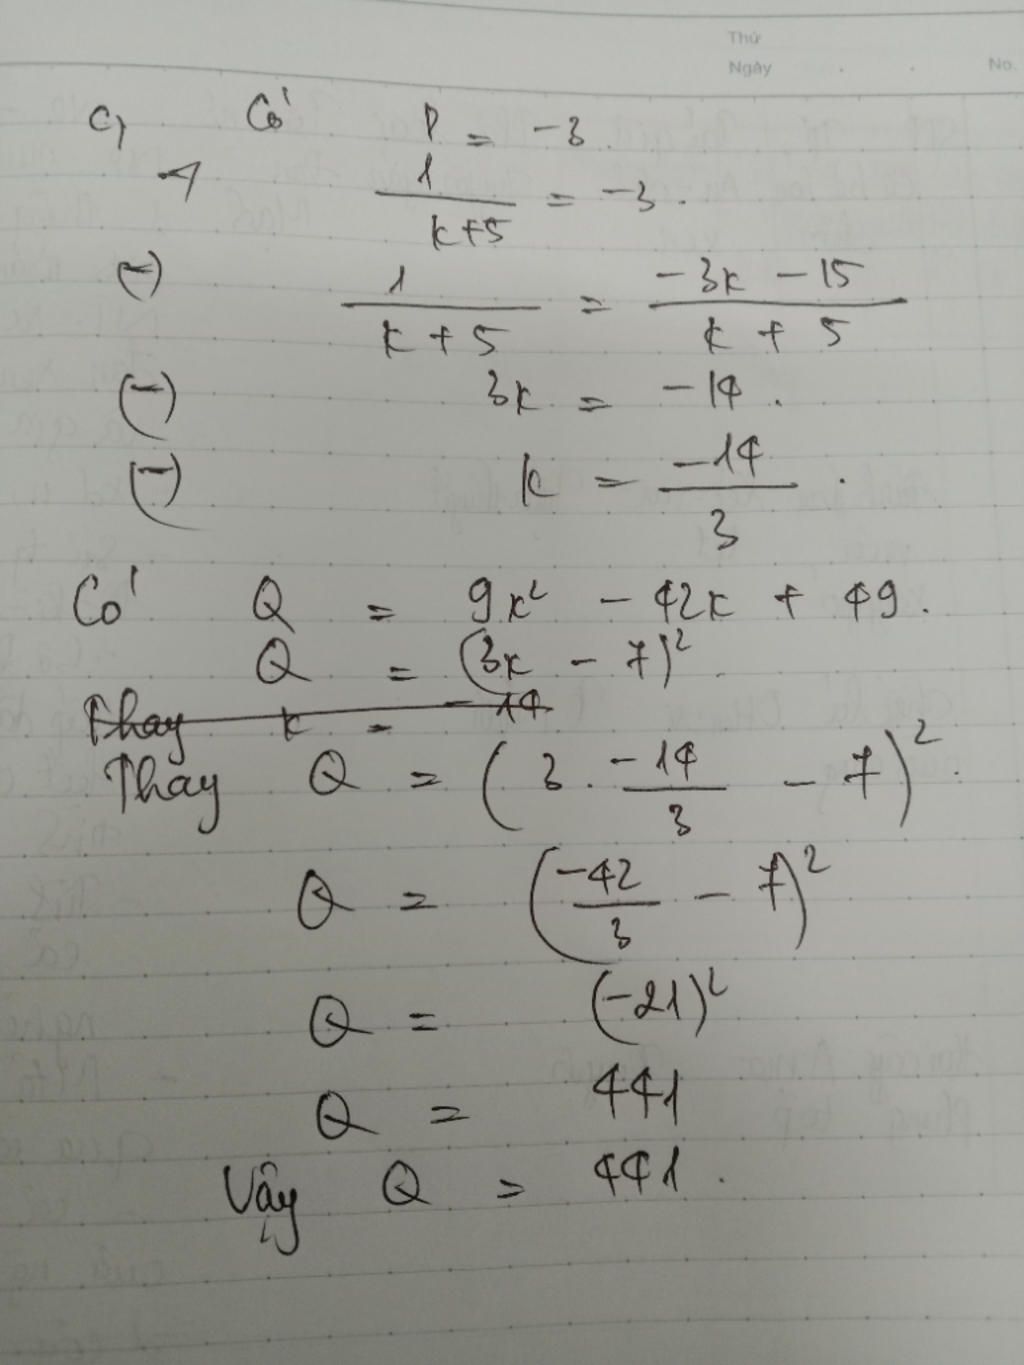 Thứ
Ngày . . No.
c, Có P = -3.
→ 1/(k+5) = -3.
(-) 1/(k+5) = (-3k - 15)/(k + 5)
(-) 3k = -14.
(-) k = -14/3.
Có Q = 9k² - 42k + 49.
Q = (3k - 7)²
Thay k = -14
Thay Q = (3 . -14/3 - 7)².
Q = (-42/3 - 7)²
Q = (-21)²
Q = 441
Vậy Q = 441.